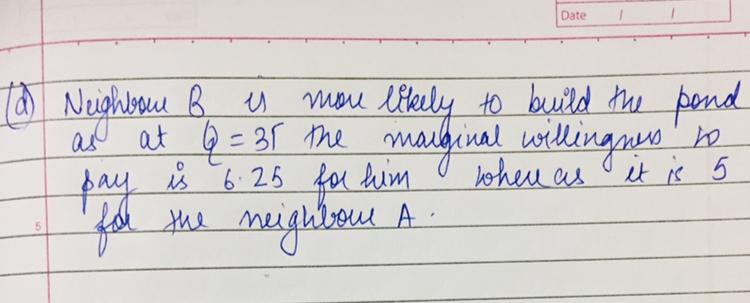 Date / /
(d) Neighbour B is more likely to build the pond
as at Q = 35 the marginal willingness to
pay is 6.25 for him where as it is 5
for the neighbour A.
5